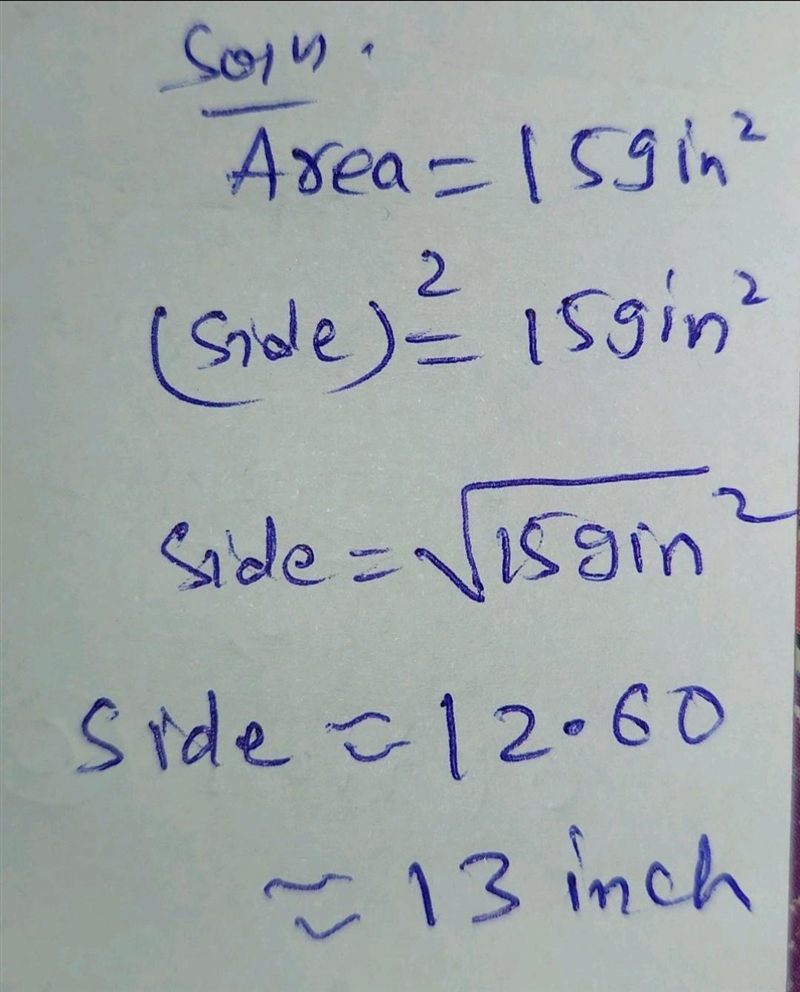 Soln.
Area = 159in²
(Side)² = 159in²
Side = √159in²
Side ≈ 12.60
≈ 13 inch